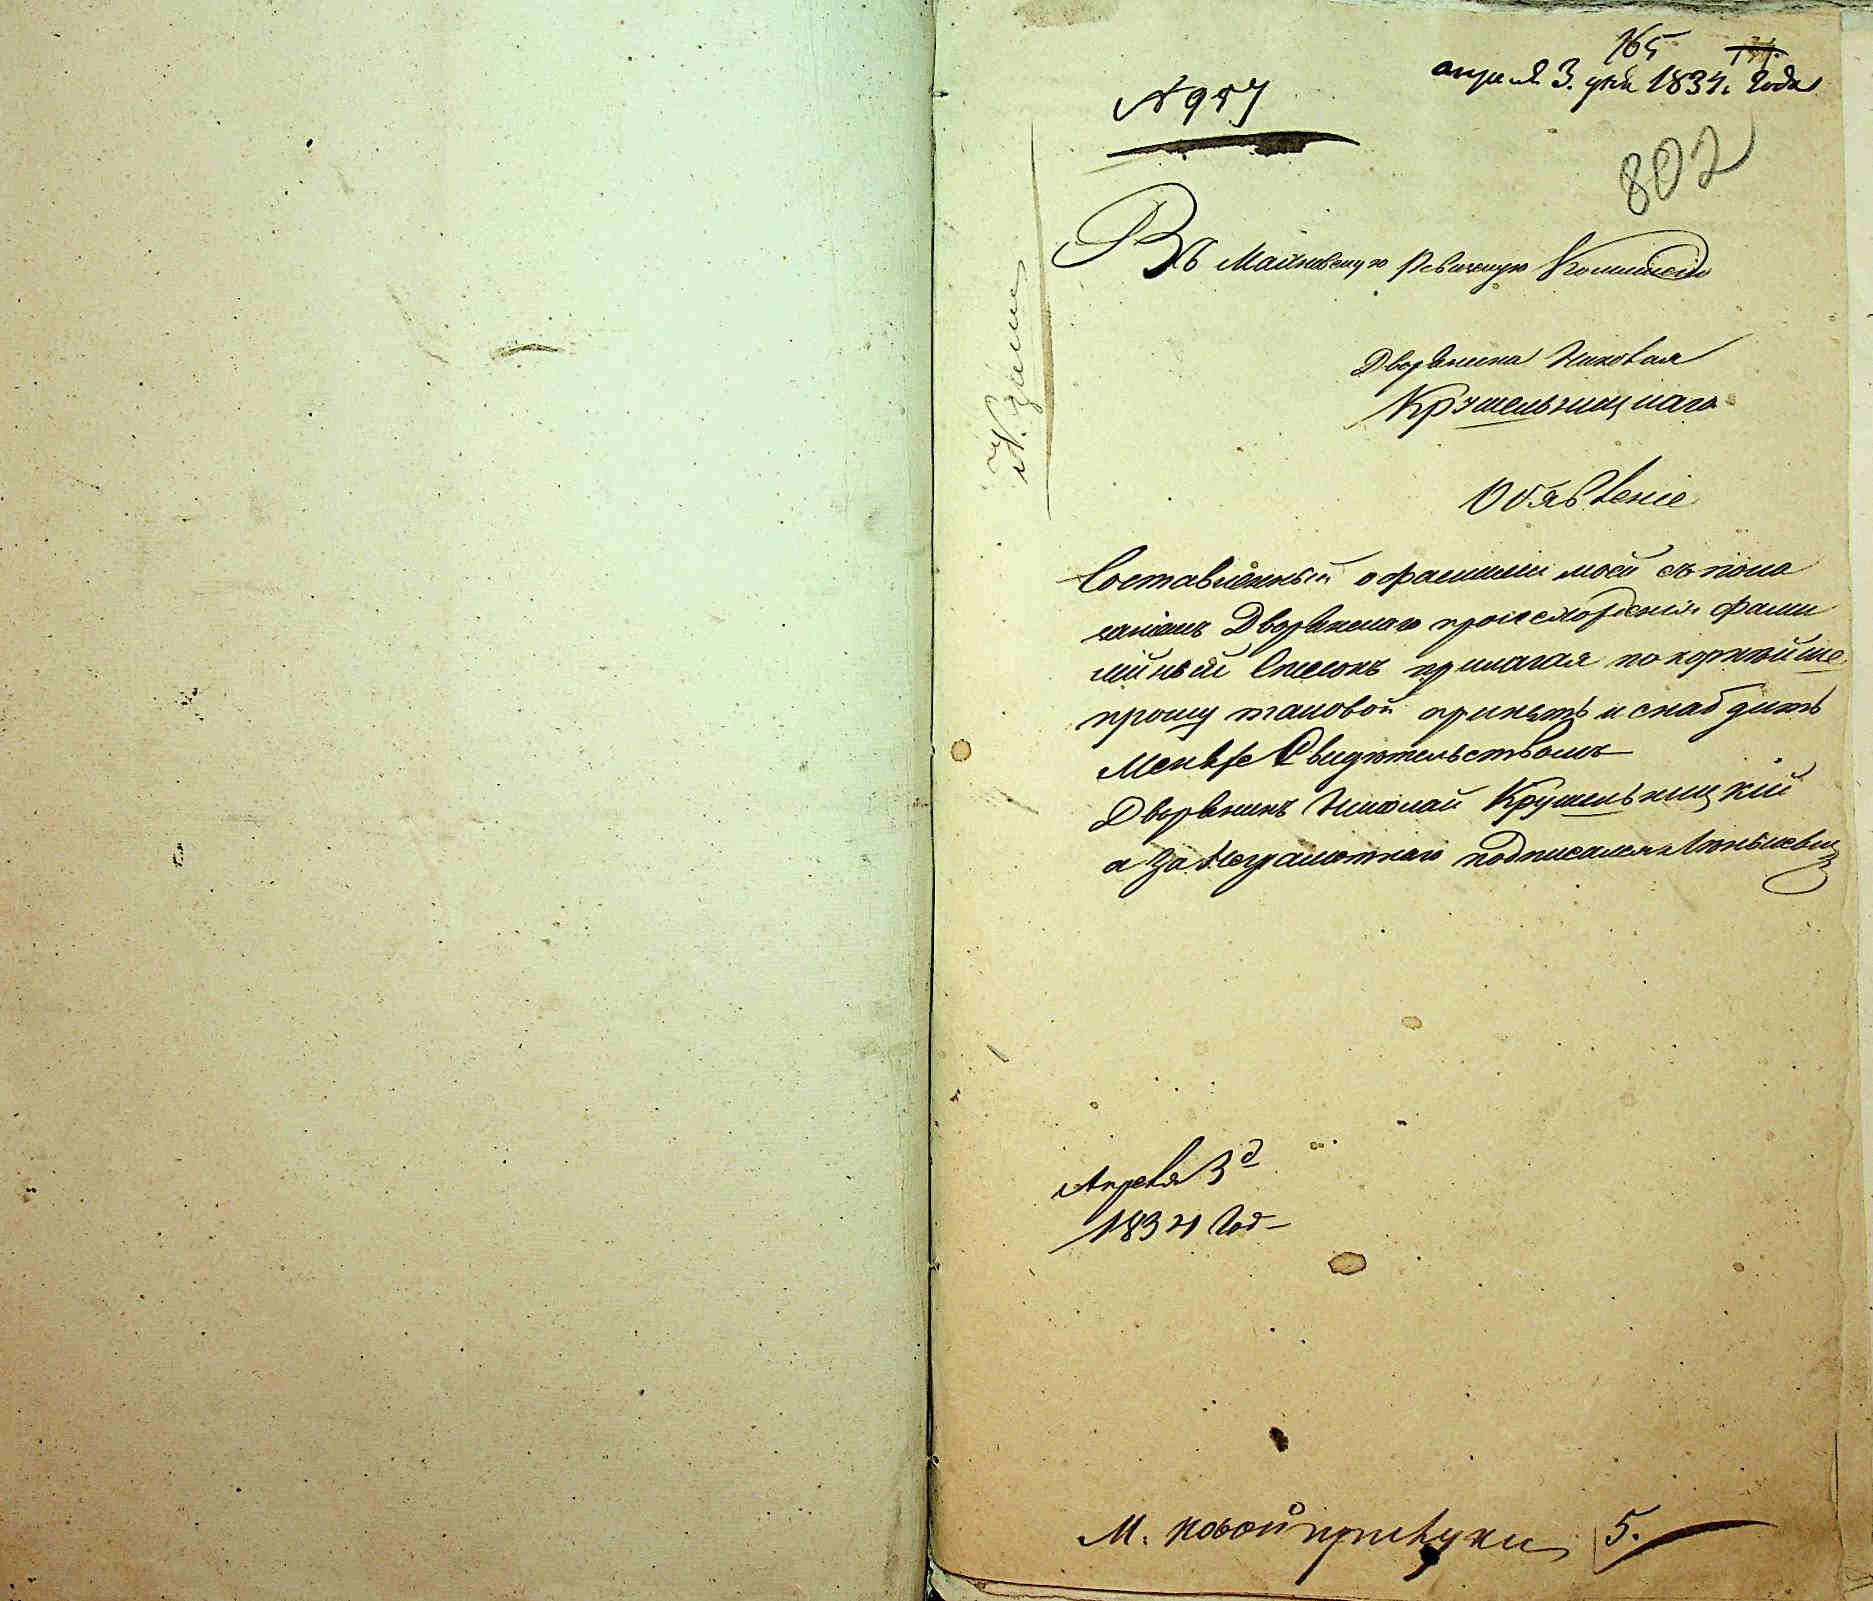 165
апреля 3. дня 1834. Года
№ 957
802
Въ Ревизскую Коммисію
Дворянина Николая
Крушельницкаго
Объявленіе
Составленный о фамиліи моей съ пока
заніемъ Дворянскаго происхожденія фами
лійный Списокъ прилагая покорнѣйше
прошу таковой принять и снабдить
Меня Свидѣтельствомъ
Дворянинъ Николай Крушельницкій
а За Неграмотнаго подписался
Апреля 3д
1834 Год
М. Новой прилуки 5.